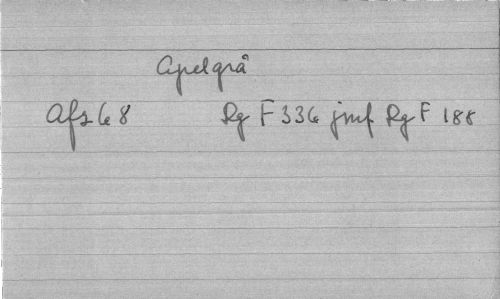 Apelgrå
Afs 68 Rg F 336 jmf Rg F 188